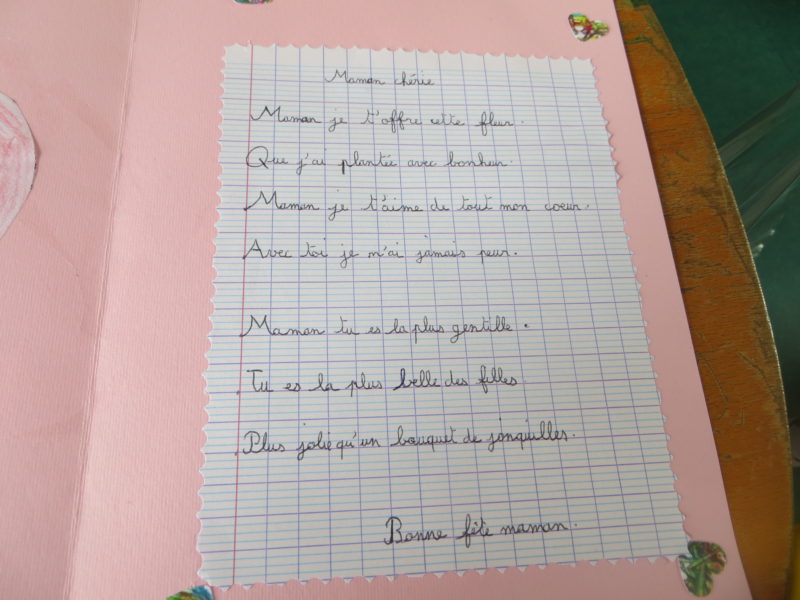 Maman chérie
Maman je t'offre cette fleur.
Que j'ai plantée avec bonheur.
Maman je t'aime de tout mon coeur.
Avec toi je m'ai jamais peur.
Maman tu es la plus gentille.
Tu es la plus belle des filles
Plus jolie qu'un bouquet de jonquilles.
Bonne fête maman.